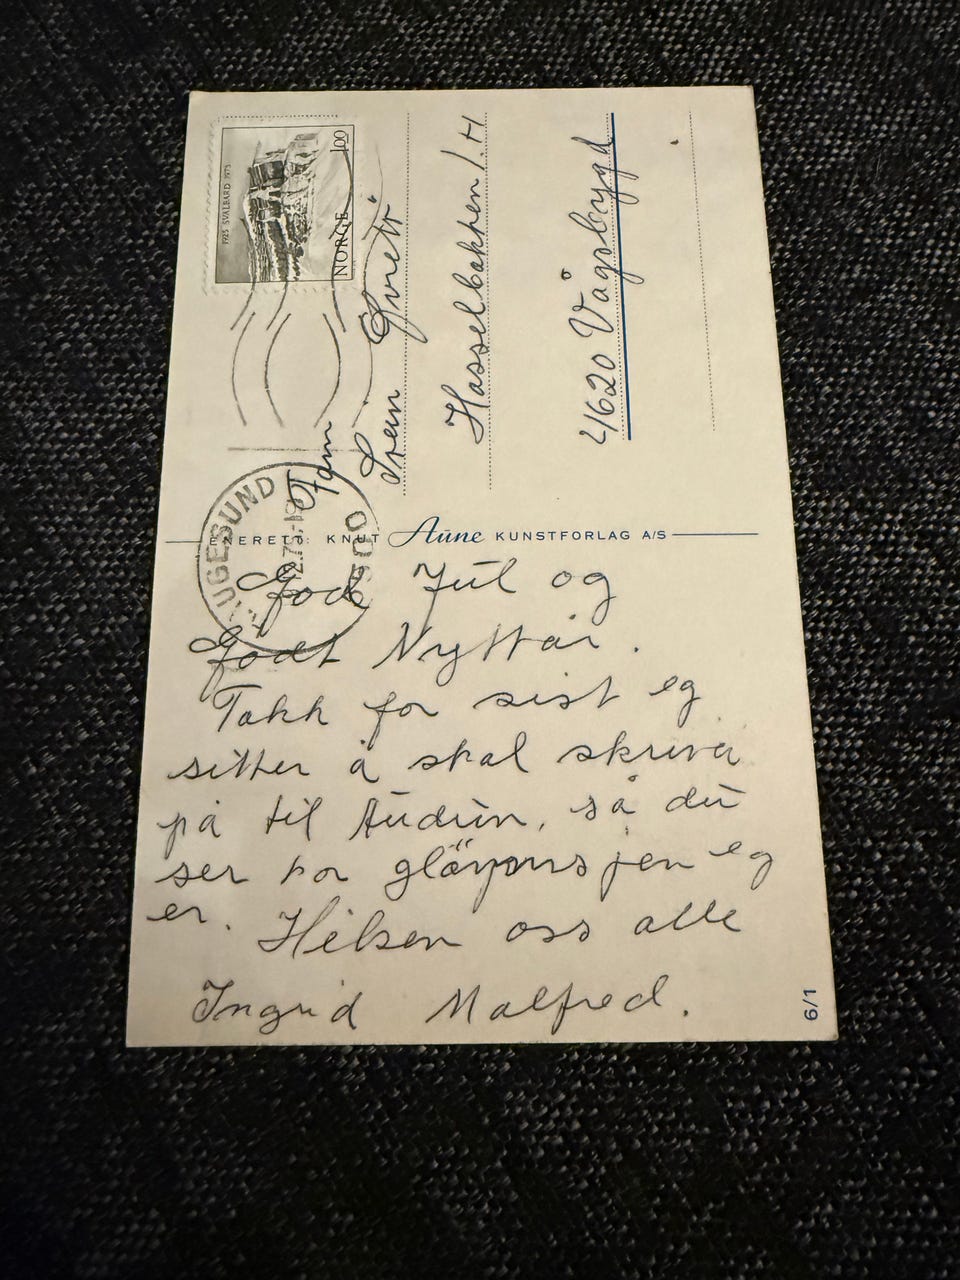 1925 SVALBARD 1975
NORGE 100
HAUGESUND
Fam
Svein
Hasselbakken 1.H
4620 Vågsbygd
ENERETT: KNUT Aune KUNSTFORLAG A/S
God Jul og
Godt Nyttår.
Takk for sist eg
sitter å skal skriva
på til Audun, så du
ser kor eg
er. Hilsen oss alle
Ingrid Malfred.
6/1